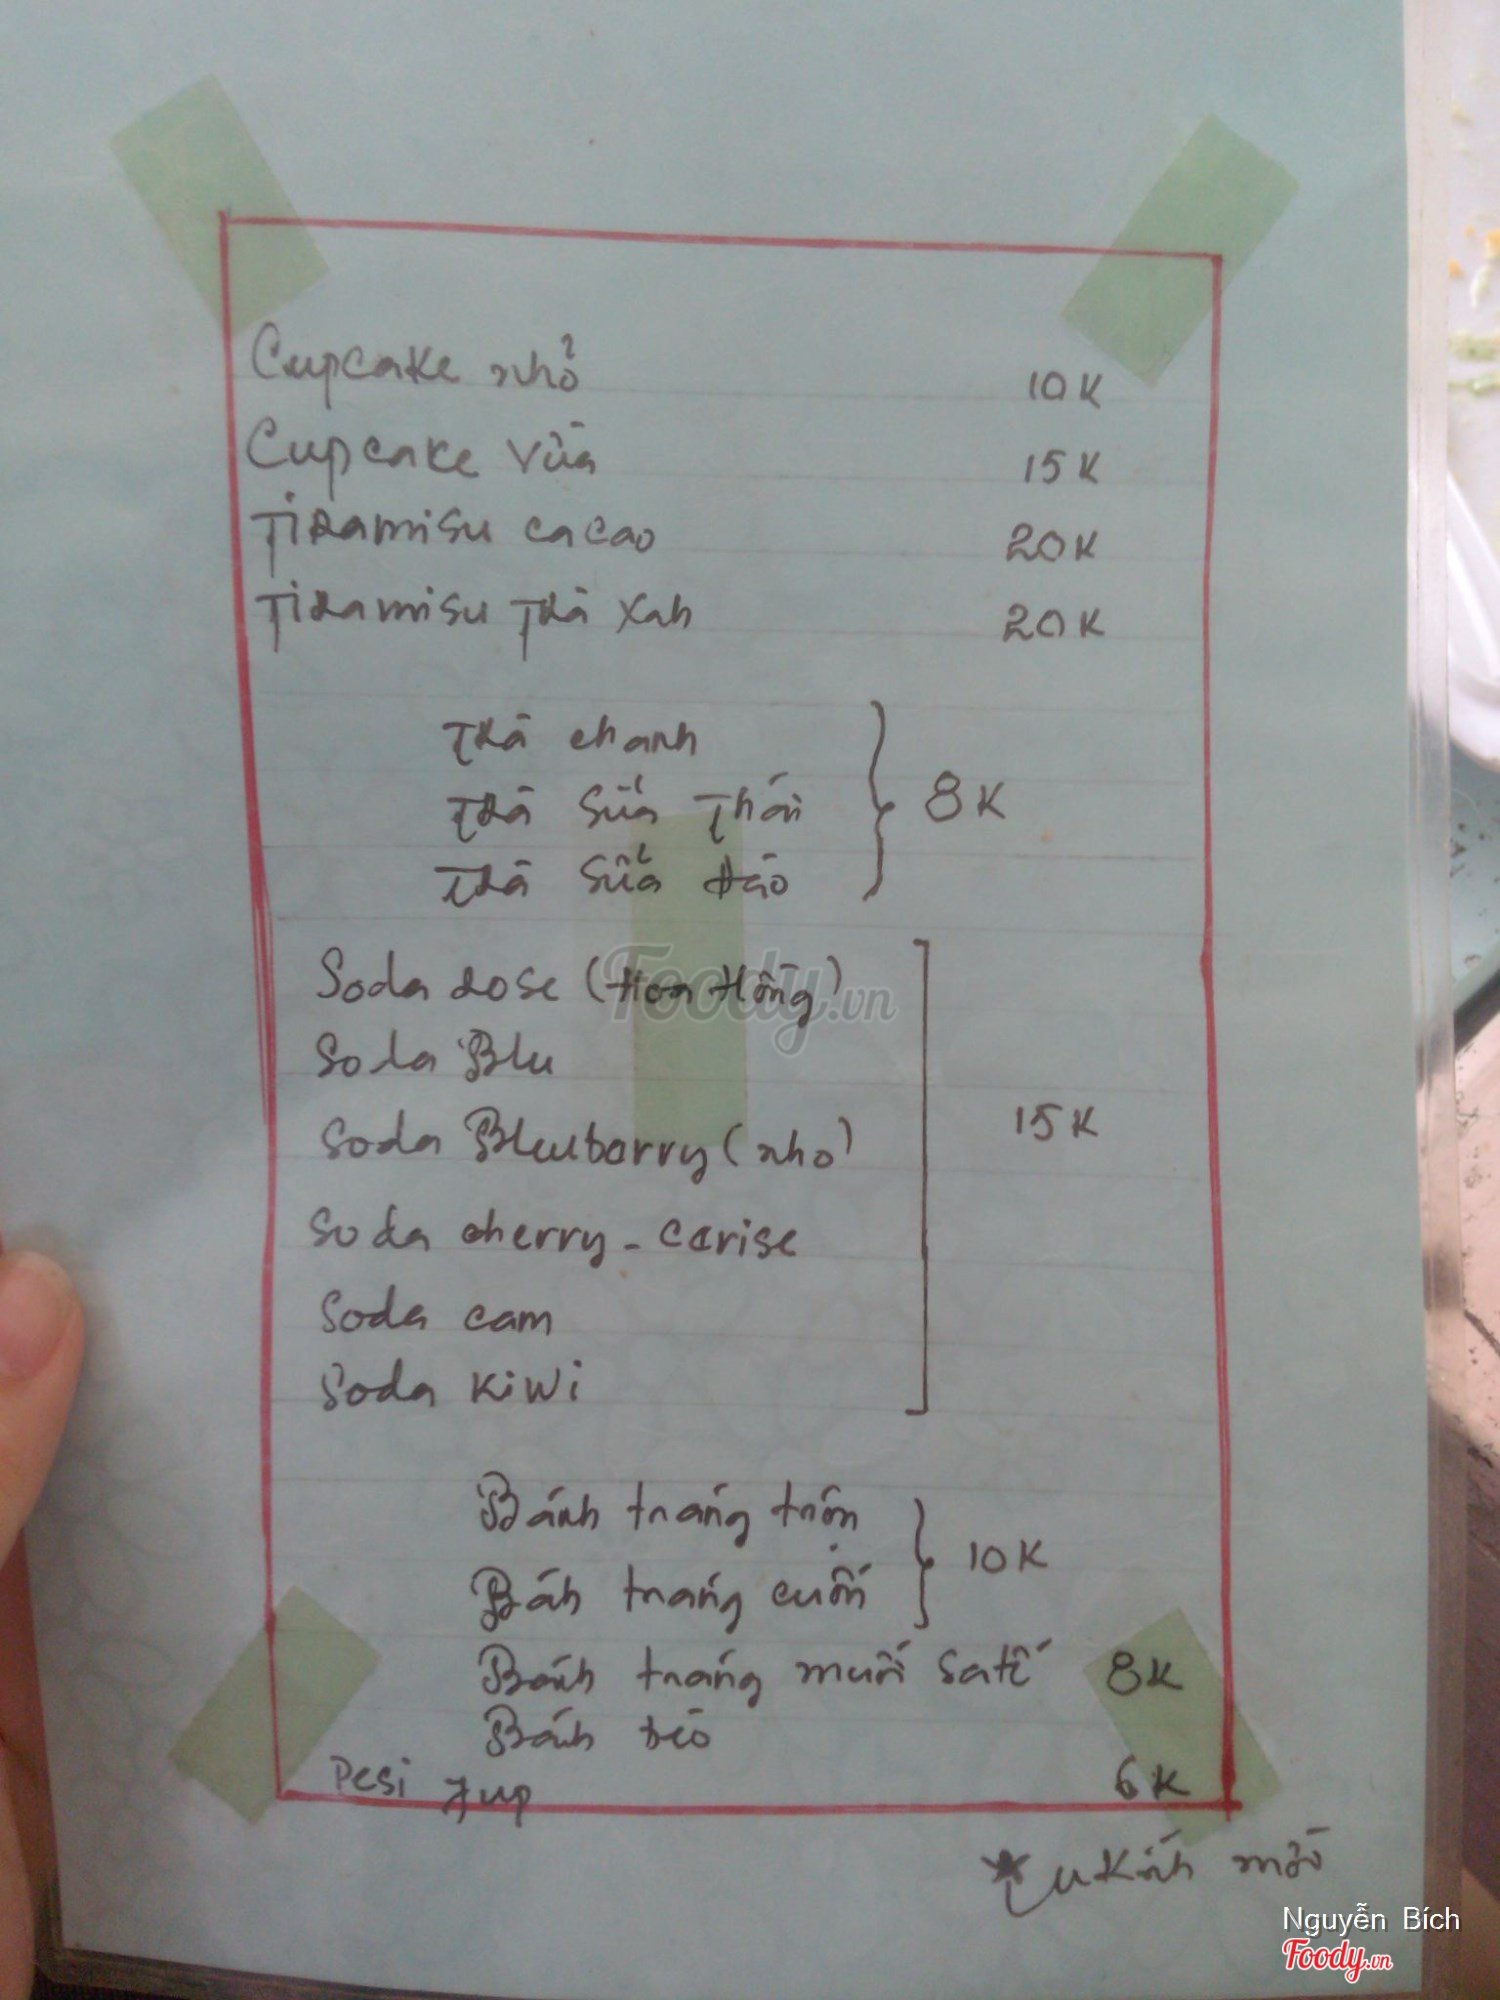 Cupcake nhỏ 10K
Cupcake vừa 15K
Tiramisu cacao 20K
Tiramisu Trà Xah 20K
Trà chanh
Trà Sữa Thái 8K
Trà Sữa Đào
Soda Rose (Hoa Hồng)
Soda Blu
Soda Blueberry (nho) 15K
Soda cherry - cerise
Soda cam
Soda KiWi
Bánh tráng trộn
Bánh tráng cuốn 10K
Bánh tráng muối Satế 8K
Bánh bèo
Pesi 7up 6K
mời
Foody.vn
Nguyễn Bích
Foody.vn